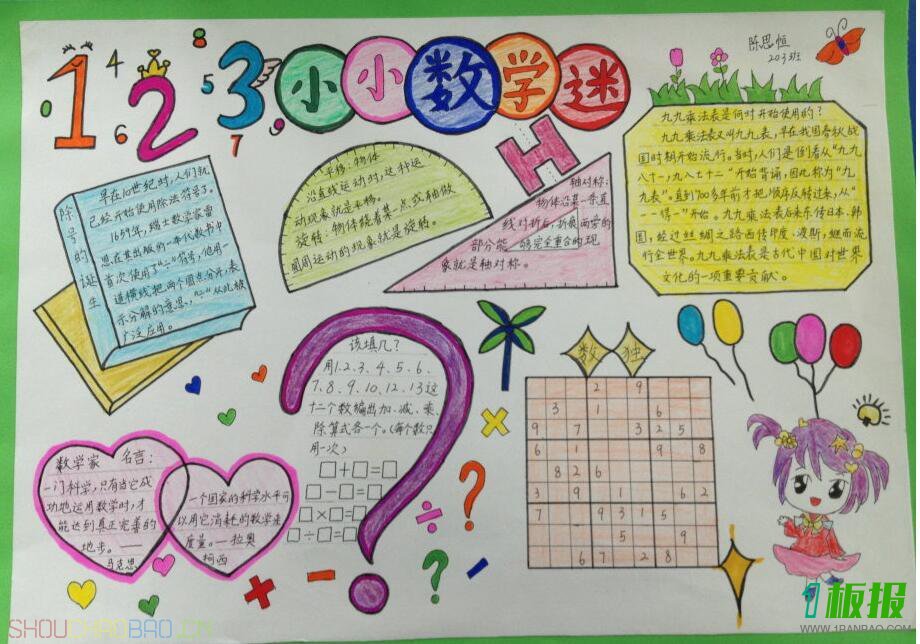 1 2 3
4
5
6
7
8
0
9
小小数学迷
陈思恒
203班
除号的诞生
早在10世纪时,人们就
已经开始使用除法符号了。
1659年,瑞士数学家雷
恩在其出版的一本代数书中
首次使用了“÷”符号,他用一
道横线把两个圆点分开,表
示分解的意思,“÷”从此被
广泛应用。
平移:物体
沿直线运动时,这种运
动现象就是平移。
旋转:物体绕着某一点或轴做
圆周运动的现象就是旋转。
轴对称:
物体沿某一条直
线对折后,折痕两旁的
部分能够完全重合的现
象就是轴对称。
九九乘法表是何时开始使用的?
九九乘法表又叫九九表,早在我国春秋战
国时期开始流行。当时,人们是倒着从“九九
八十一,九八七十二”开始背诵,因此称为“九
九表”。直到700多年前才把顺序反转过来,从“
一一得一”开始。九九乘法表后来东传日本、韩
国,经过丝绸之路西传印度、波斯,继而流
行全世界。九九乘法表是古代中国对世界
文化的一项重要贡献。
该填几?
用1、2、3、4、5、6、
7、8、9、10、12、13这
十二个数编出加、减、乘、
除算式各一个。(每个数只
用一次)
□+□=□
□-□=□
□×□=□
□÷□=□
数独
2 9
3 1 6
9 7 3 2 5
6 1 9 8
8 2 6
3 9 1 6 2
7 9 3 1 5
5 9
6 7 2 8
数学家 名言:
一门科学,只有当它成
功地运用数学时,才
能达到真正完善的
地步。——
马克思
一个国家的科学水平可
以用它消耗的数学来
度量。—拉奥
柯西
× ÷ + - ? ?
SHOUCHAOBAO.CN
1板报
WWW.1BANBAO.COM